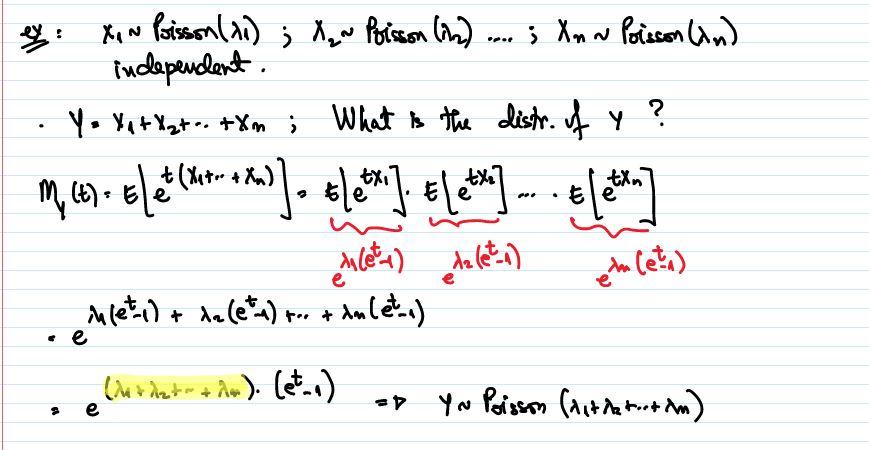 ex : X₁ ~ Poisson(λ1) ; X₂ ~ Poisson(λ2) .... ; Xn ~ Poisson(λn)
independent.
. Y = X₁+X₂+... +Xn ; What is the distr. of Y ?
M_Y(t) = E[e^{t(X₁+...+Xn)}] = E[e^{tX₁}] . E[e^{tX₂}] .... . E[e^{tXn}]
e^{λ1(e^t-1)} e^{λ2(e^t-1)} e^{λn(e^t-1)}
= e^{λ1(e^t-1) + λ2(e^t-1) +... + λn(e^t-1)}
= e^{(λ1+λ2+...+λn).(e^t-1)} => Y ~ Poisson (λ1+λ2+...+λn)